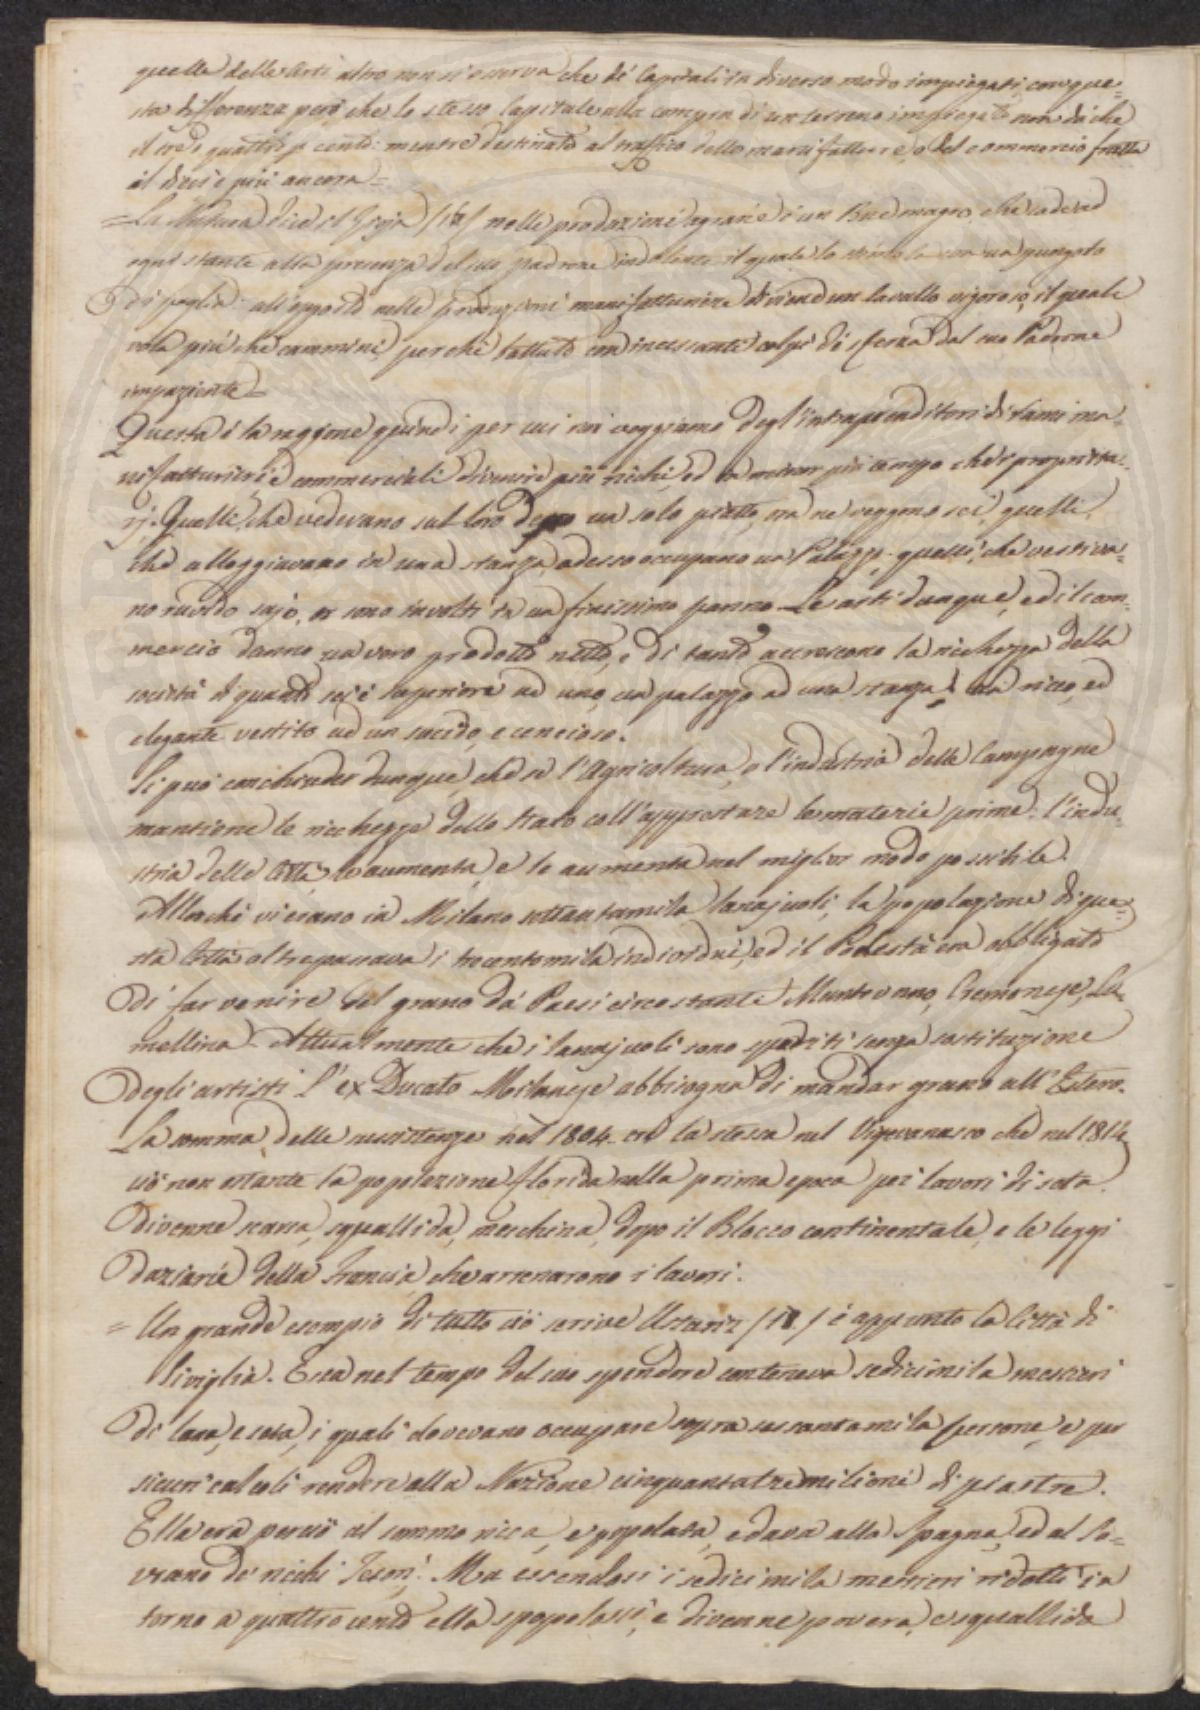 quella delle Arti altro non si osserva che de' Capitali in diverso modo impiegati, con que=
sta differenza però, che lo stesso Capitale alla compra di un terreno impiegato non dà che
il tre, o quattro p cento: mentre destinato al traffico delle manifatture, o del commercio frutta
il dieci e più ancora =
= La Natura dice il Gioja /12/ nelle produzioni agrarie è un Bue magro, che cade ad
ogni istante alla presenza del suo padrone indolente il quale lo stimola con un pungolo
di paglia: all'opposto nelle produzioni manifatturiere diviene un Cavallo vigoroso, il quale
vola più che cammini perché battuto con incessanti colpi di sferza dal suo Padrone
impaziente =
Questa è la raggione quindi per cui noi veggiamo degl'intraprenditori di rami ma=
nifatturieri e commerciali divenire più ricchi, ed in minor più tempo che i proprieta=
rj. Quelli, che vedevano sul loro desco un solo piatto, ora ne veggono sei, quelli,
che alloggiavano in una stanza adesso occupano un Palazzo, quelli, che vestiva=
no ruvido sajo, or sono involti in un finissimo panno. Le arti dunque, ed il com=
mercio danno un vero prodotto netto, e di tanto accrescono la ricchezza della
società di quanto sei è superiore ad uno, un palazzo ad una stanza, un ricco, ed
elegante vestito ad un sucido, e cencioso.
Si può conchiuder dunque, che se l'Agricoltura, o l'industria delle Campagne
mantiene le ricchezze dello Stato coll'apprestare le materie prime: l'indu=
stria delle Città, le aumenta, e le aumenta nel miglior modo possibile.
Allorché vi erano in Milano settantamila lanajuoli, la popolazione di que=
sta Città oltrepassava i trecentomila individui, ed il Podestà era obbligato
di far venire del grano da' Paesi circostanti Mantovano, Cremonese, Lo=
mellina. Attualmente che i lanajuoli sono spariti senza sostituzione
degli artisti l'ex Ducato Milanese abbisogna di mandar grano all'Estero.
La somma delle sussistenze nel 1804. era la stessa nel Vigevanasco che nel 1814,
ciò non ostante la popolazione florida nella prima epoca pei lavori di seta
divenne scarsa, squallida, meschina, dopo il Blocco continentale, e le leggi
daziarie della Francia, che arrenarono i lavori.
= Un grande esempio di tutto ciò scrive Ustariz /13./ è appunto la Città di
Siviglia. Essa nel tempo del suo splendore conteneva sedicimila mestieri
di lana, e seta, i quali dovevano occupare sopra sessantamila persone, e per
sicuri calcoli rendere alla Nazione cinquantatremilioni di piastre.
Ella era perciò al sommo ricca, e popolata, e dava alla Spagna, ed al So=
vrano de' ricchi Tesori. Ma essendosi i sedicimila mestieri ridotti in
torno a quattrocento ella spopolossi, e divenne povera, e squallida